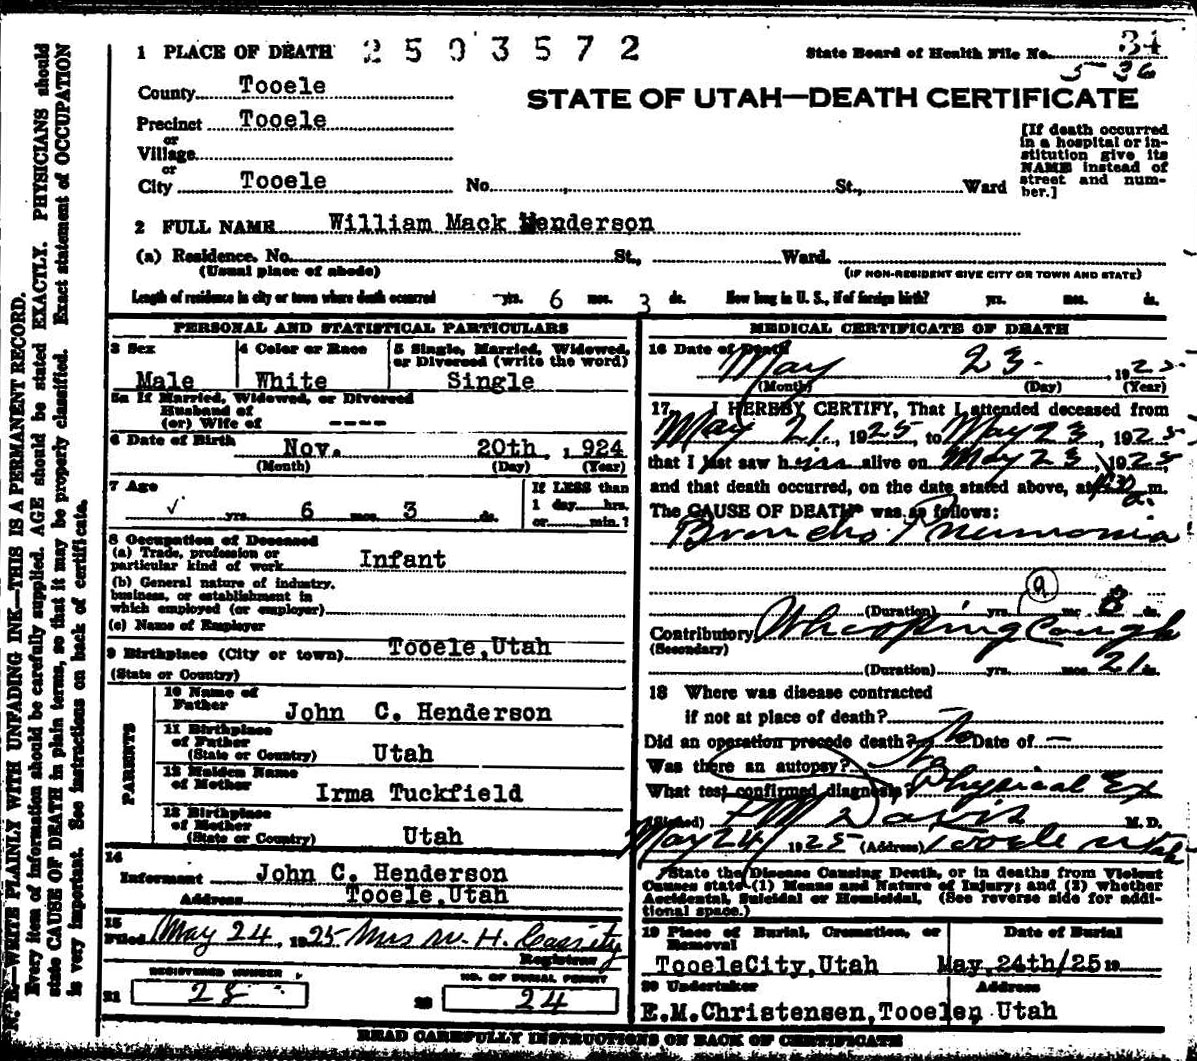 1 PLACE OF DEATH 2503572 State Board of Health File No. 34
5-36
County Tooele
STATE OF UTAH—DEATH CERTIFICATE
Precinct Tooele
or
Village
or
City Tooele No. St., Ward
[If death occurred
in a hospital or in-
stitution give its
NAME instead of
street and num-
ber.]
2 FULL NAME William Mack Henderson
(a) Residence. No. St., Ward.
(Usual place of abode) (IF NON-RESIDENT GIVE CITY OR TOWN AND STATE)
Length of residence in city or town where death occurred yrs. 6 mos. 3 ds. How long in U. S., if of foreign birth? yrs. mos. ds.
PERSONAL AND STATISTICAL PARTICULARS
3 Sex 4 Color or Race 5 Single, Married, Widowed,
or Divorced (write the word)
Male White Single
5a If Married, Widowed, or Divorced
Husband of
(or) Wife of ----
6 Date of Birth Nov. 20th, 1924
(Month) (Day) (Year)
7 Age If LESS than
1 day hrs.
✓ yrs. 6 mos. 3 ds. or min.?
8 Occupation of Deceased
(a) Trade, profession or
particular kind of work Infant
(b) General nature of industry,
business, or establishment in
which employed (or employer)
(c) Name of Employer
9 Birthplace (City or town) Tooele, Utah
(State or Country)
PARENTS
10 Name of
Father John C. Henderson
11 Birthplace
of Father
(State or Country) Utah
12 Maiden Name
of Mother Irma Tuckfield
13 Birthplace
of Mother
(State or Country) Utah
14
Informant John C. Henderson
Address Tooele, Utah
15
Filed May 24, 1925 Mrs W. H. Cassity
Registrar
REGISTERED NUMBER NO. OF BURIAL PERMIT
21 28 22 24
MEDICAL CERTIFICATE OF DEATH
16 Date of Death May 23 1925
(Month) (Day) (Year)
17 I HEREBY CERTIFY, That I attended deceased from
May 21, 1925, to May 23, 1925
that I last saw him alive on May 23, 1925
and that death occurred, on the date stated above, at a. m.
The CAUSE OF DEATH* was as follows:
Broncho Pneumonia
(a)
(Duration) yrs. mos. 8 ds.
Contributory Whooping Cough
(Secondary)
(Duration) yrs. mos. 21 ds.
18 Where was disease contracted
if not at place of death?
Did an operation precede death? No Date of —
Was there an autopsy? No
What test confirmed diagnosis? Physical Ex
(Signed) Davis M. D.
May 24, 1925 (Address) Tooele Utah
*State the Disease Causing Death, or in deaths from Violent
Causes state (1) Means and Nature of Injury; and (2) whether
Accidental, Suicidal or Homicidal. (See reverse side for addi-
tional space.)
19 Place of Burial, Cremation, or
Removal Date of Burial
TooeleCity, Utah May. 24th/25 19
20 Undertaker Address
E.M.Christensen, Tooele, Utah
READ CAREFULLY INSTRUCTIONS ON BACK OF CERTIFICATE
N. B.—WRITE PLAINLY WITH UNFADING INK—THIS IS A PERMANENT RECORD.
Every item of information should be carefully supplied. AGE should be stated EXACTLY. PHYSICIANS should
state CAUSE OF DEATH in plain terms, so that it may be properly classified. Exact statement of OCCUPATION
is very important. See instructions on back of certificate.